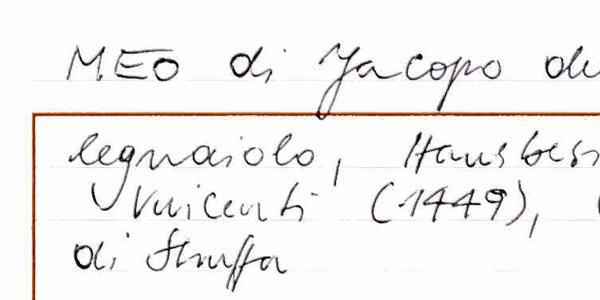 MEO di Jacopo de
legnaiolo, Hausbes
Vincenti (1449),
di Struffa